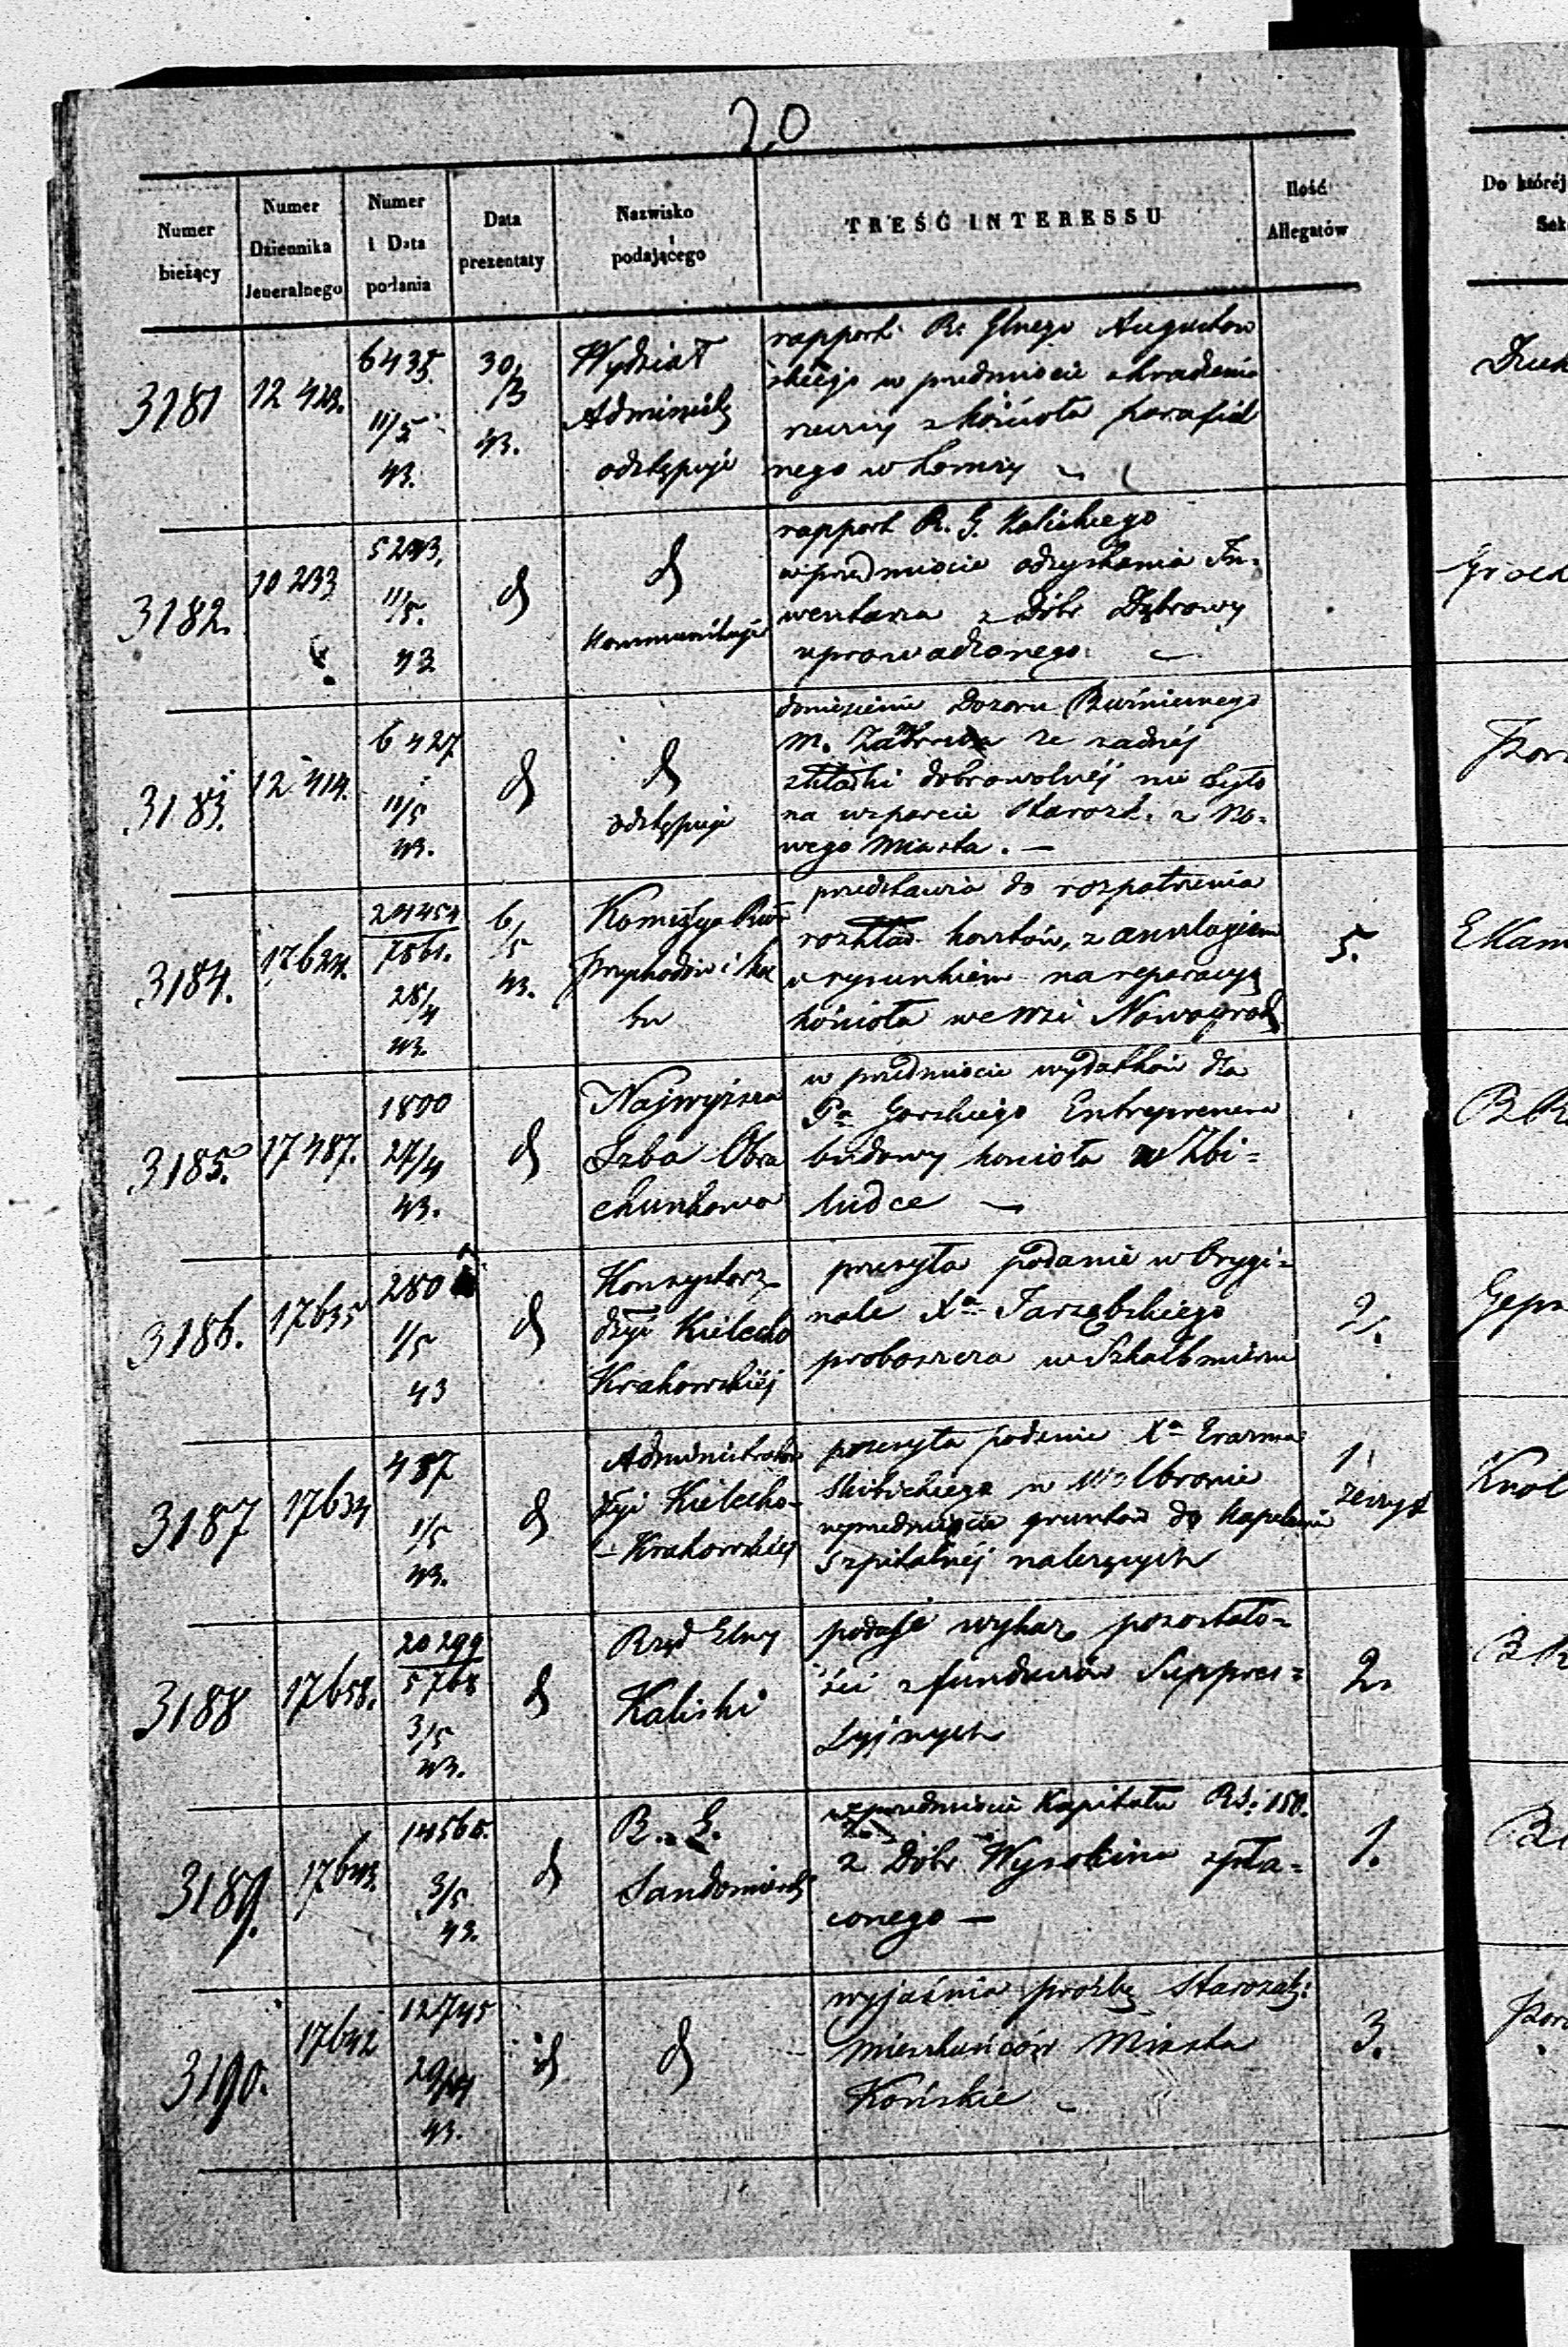 20
Numer bieżący
Numer Dziennika Jeneralnego
Numer i Data podania
Data prezentaty
Nazwisko podającego
TREŚĆ INTERESSU
Ilość Allegatów
Do której
Sek
3181
12 423.
6435.
11/5
43.
30/3
43.
Wydział
Administ
odstępuje
rapport R: Glnego Augustow
skiego w przedmiocie skradzenia
rzeczy z kościoła parafial
nego w Łomży
3182.
10 233
5243.
11/5.
43
d
d
kommunikuje
rapport R. G. Kaliskiego
w przedmiocie odzyskania In=
wentarza z Dóbr Dąbrowy
uprowadzonego.
3183.
12 414.
6 427
11/5
43.
d
d
odstępuje
doniesienie Dozoru Bóżnicznego
m. że żadnéj
składki dobrowolnéj nie było
na wsparcie Starozk. z No=
wego Miasta. —
3184.
17624.
24454
7861.
28/4
43.
6/5
43.
Komisya Rzą
Przychodów i Skar
bu
przedstawia do rozpatrzenia
rozkład kosztów, z anszlagiem
i rysunkiem na reparacyą
kościoła we wsi Nowogrod
5.
3185.
17487.
1800
27/4
43.
d
Najwyższa
Izba Obra
chunkowa
w przedmiocie wydatków dla
Pa Gorskiego Entreprenera
budowy kościoła w Zbi=
ludce —
3186.
17635
280
1/5
43
d
Konsystorz
dyi Kielecko
Krakowskiéj
przesyła podanie w Orygi=
nale Xa Jarzębskiego
proboszcza w Skalbmierzu
2.
Geps
3187
17634
487
1/5
43.
d
Administrator
dyi Kielecko-
- Krakowskiej
przesyła podanie Xa Erazma
Skibickiego w Wolbromie
w przedmiocie gruntów do Kapelanii
szpitalnéj należących
1
zeszyt
3188
17658.
20 299
5768
3/5
43.
d
Rząd Glny
Kaliski
podaje wykaz pozostało=
ści z funduszów Suppres=
syjnych
2.
3189.
17643.
14560.
3/5
43.
d
R. G.
Sandomierski
w przedmiocie Kapitału RS: 150.
z Dóbr Wysokina spła=
conego —
1.
3190.
17642
12745
29/4
43.
d
d
wyjaśnia prośbę Starozak:
mieszkańców Miasta
Końskie
3.